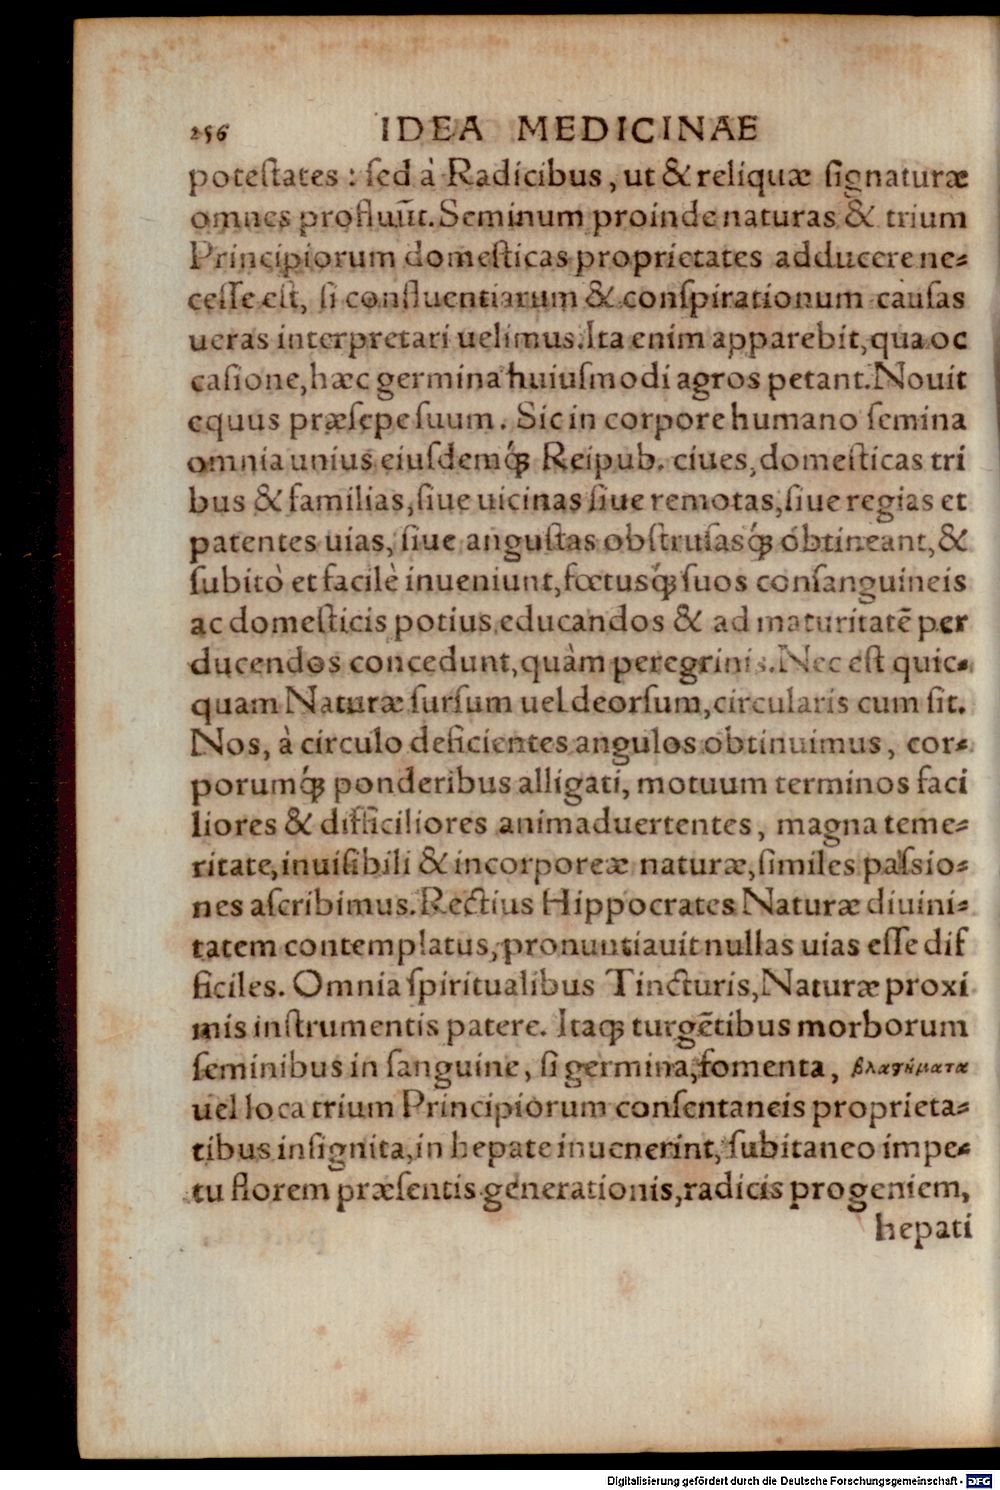 256 IDEA MEDICINAE
poteſtates : ſed à Radicibus, ut & reliquæ ſignaturæ
omnes profluũt. Seminum proinde naturas & trium
Principiorum domeſticas proprietates adducere ne-
ceſſe eſt, ſi confluentiarum & conſpirationum cauſas
ueras interpretari uelimus. Ita enim apparebit, qua oc
caſione, hæc germina huiuſmodi agros petant. Nouit
equus præſepe ſuum. Sic in corpore humano ſemina
omnia unius eiuſdemq́ꝫ Reipub. ciues, domeſticas tri
bus & familias, ſiue uicinas ſiue remotas, ſiue regias et
patentes uias, ſiue anguſtas obſtruſasq́ꝫ obtineant, &
ſubitò et facilè inueniunt, fœtusq́ꝫ ſuos conſanguineis
ac domeſticis potius educandos & ad maturitatẽ per
ducendos concedunt, quàm peregrinis. Nec eſt quic-
quam Naturæ ſurſum uel deorſum, circularis cum ſit.
Nos, à circulo deficientes angulos obtinuimus, cor-
porumq́ꝫ ponderibus alligati, motuum terminos faci
liores & difficiliores animaduertentes, magna teme-
ritate, inuiſibili & incorporeæ naturæ, ſimiles paſsio-
nes aſcribimus. Rectius Hippocrates Naturæ diuini-
tatem contemplatus, pronuntiauit nullas uias eſſe dif
ficiles. Omnia ſpiritualibus Tincturis, Naturæ proxi
mis inſtrumentis patere. Itaqꝫ turgẽtibus morborum
ſeminibus in ſanguine, ſi germina, fomenta, βλαϛήματα
uel loca trium Principiorum conſentaneis proprieta-
tibus inſignita, in hepate inuenerint, ſubitaneo impe-
tu florem præſentis generationis, radicis progeniem,
hepati
Digitalisierung gefördert durch die Deutsche Forschungsgemeinschaft - DFG